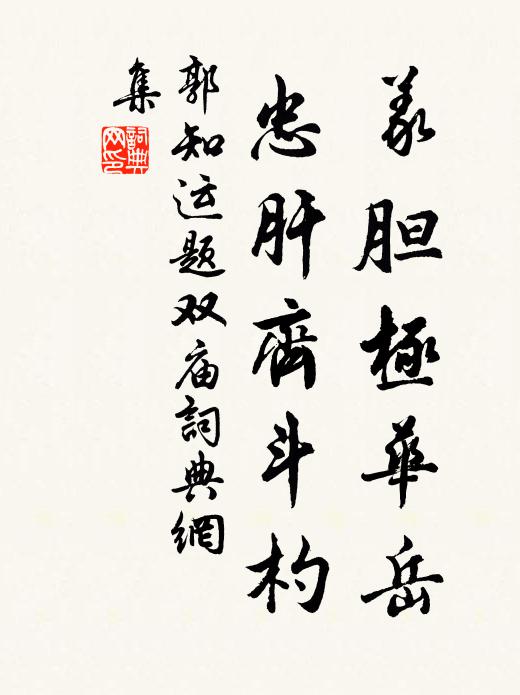 義胆極華岳
忠肝齊斗杓
郭知运题双庙詞典網
集
詞典網印